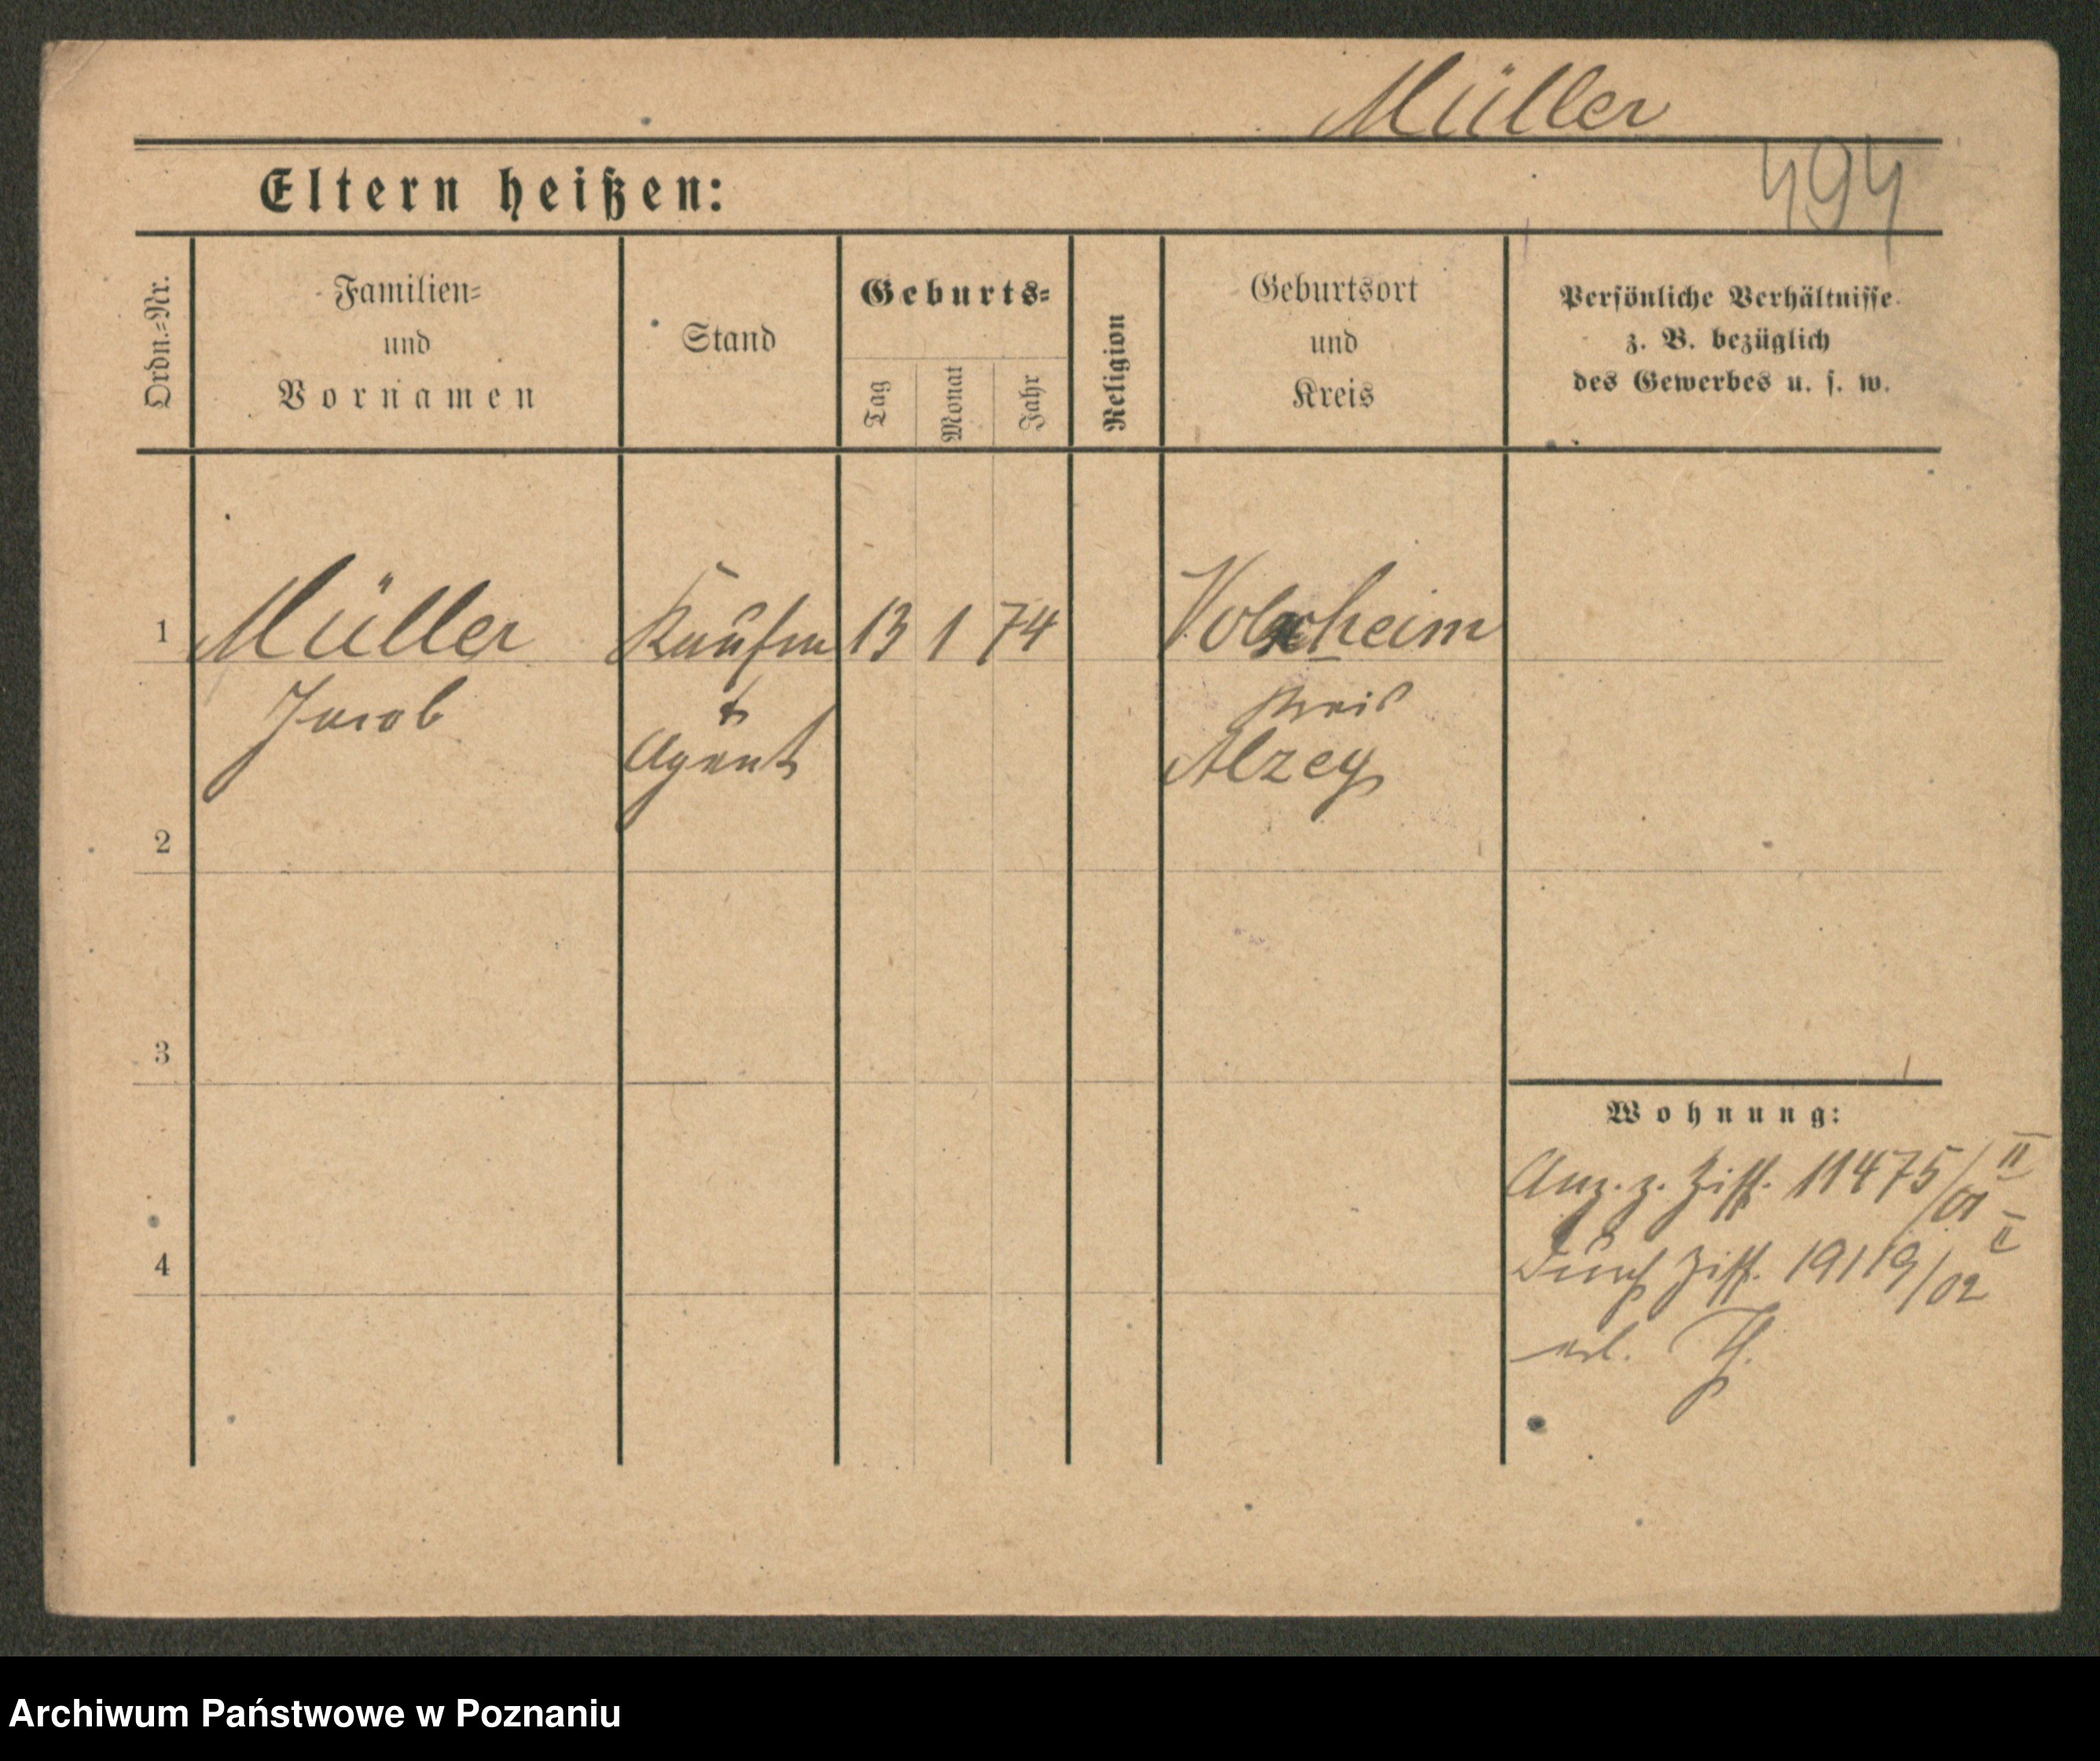 Müller
494
Eltern heißen:
Ordn.=Nr.
Familien=
und
Vornamen
Stand
Geburts=
Tag
Monat
Jahr
Religion
Geburtsort
und
Kreis
Persönliche Verhältnisse
z. B. bezüglich
des Gewerbes u. s. w.
1 Müller Kaufm 13 1 74 Volxheim
Jacob & Kreis
Agent Alzey
2
3
Wohnung:
Anz. z. Ziff. 11475/01 II
4
Durch Ziff. 19119/02 II
erl.
Archiwum Państwowe w Poznaniu